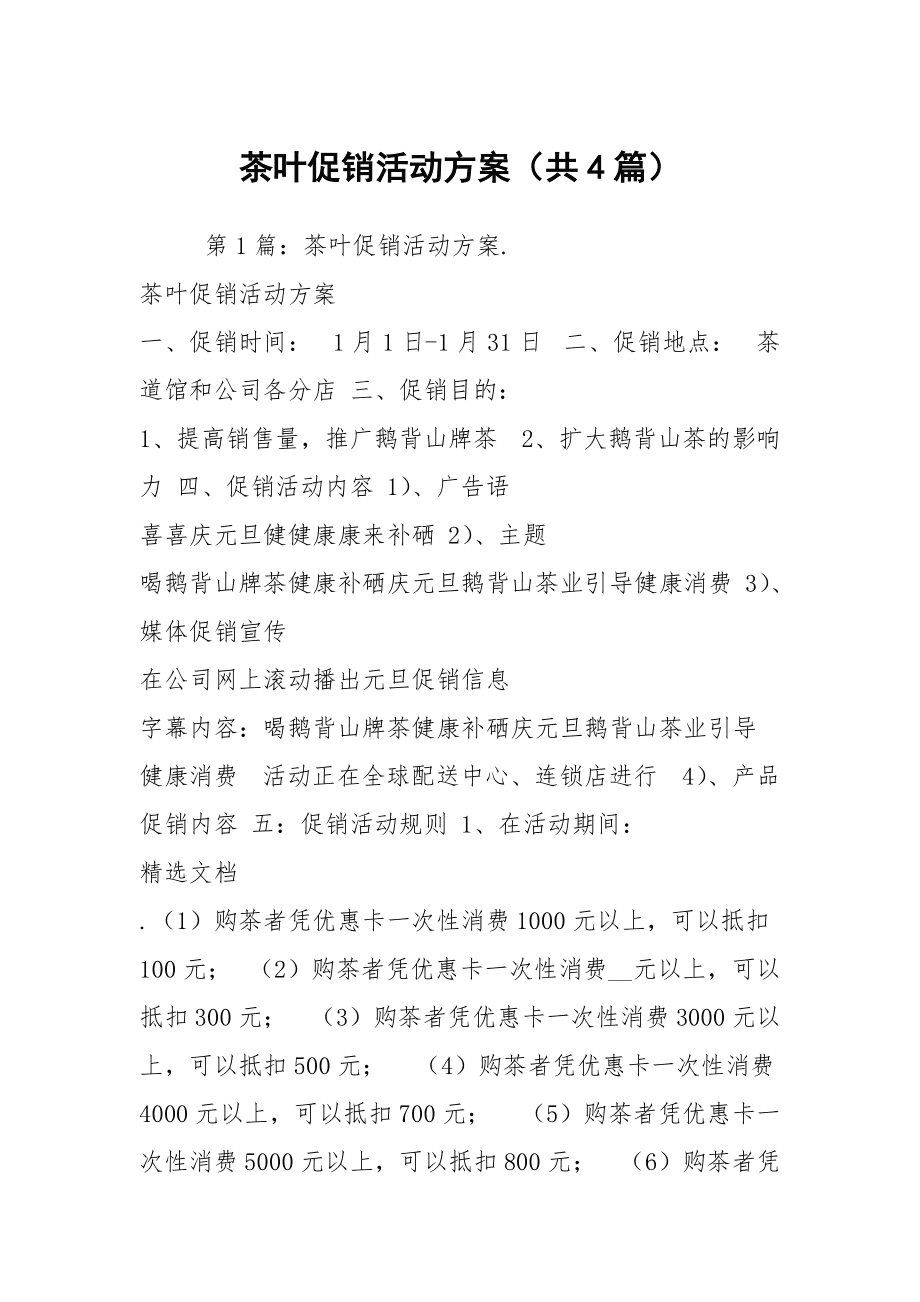 茶叶促销活动方案（共4篇）
第1篇：茶叶促销活动方案.
茶叶促销活动方案
一、促销时间： 1月1日-1月31日 二、促销地点： 茶
道馆和公司各分店 三、促销目的：
1、提高销售量，推广鹅背山牌茶 2、扩大鹅背山茶的影响
力 四、促销活动内容 1)、广告语
喜喜庆元旦健健康康来补硒 2)、主题
喝鹅背山牌茶健康补硒庆元旦鹅背山茶业引导健康消费 3)、
媒体促销宣传
在公司网上滚动播出元旦促销信息
字幕内容：喝鹅背山牌茶健康补硒庆元旦鹅背山茶业引导
健康消费 活动正在全球配送中心、连锁店进行 4)、产品
促销内容 五：促销活动规则 1、在活动期间：
精选文档
.（1）购茶者凭优惠卡一次性消费1000元以上，可以抵扣
100元； （2）购茶者凭优惠卡一次性消费__元以上，可以
抵扣300元； （3）购茶者凭优惠卡一次性消费3000元以
上，可以抵扣500元； （4）购茶者凭优惠卡一次性消费
4000元以上，可以抵扣700元； （5）购茶者凭优惠卡一
次性消费5000元以上，可以抵扣800元； （6）购茶者凭